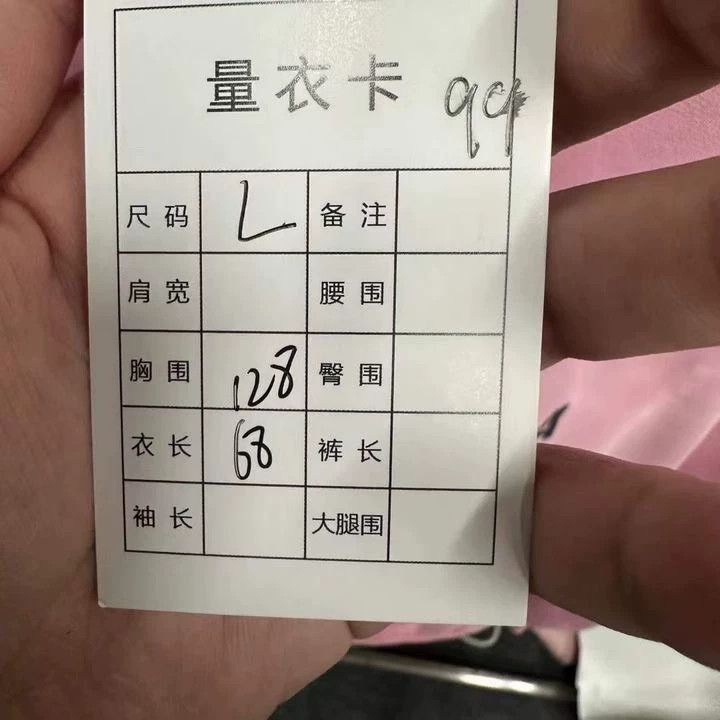 量衣卡 99
尺码 L 备注
肩宽 腰围
胸围 128 臀围
衣长 68 裤长
袖长 大腿围